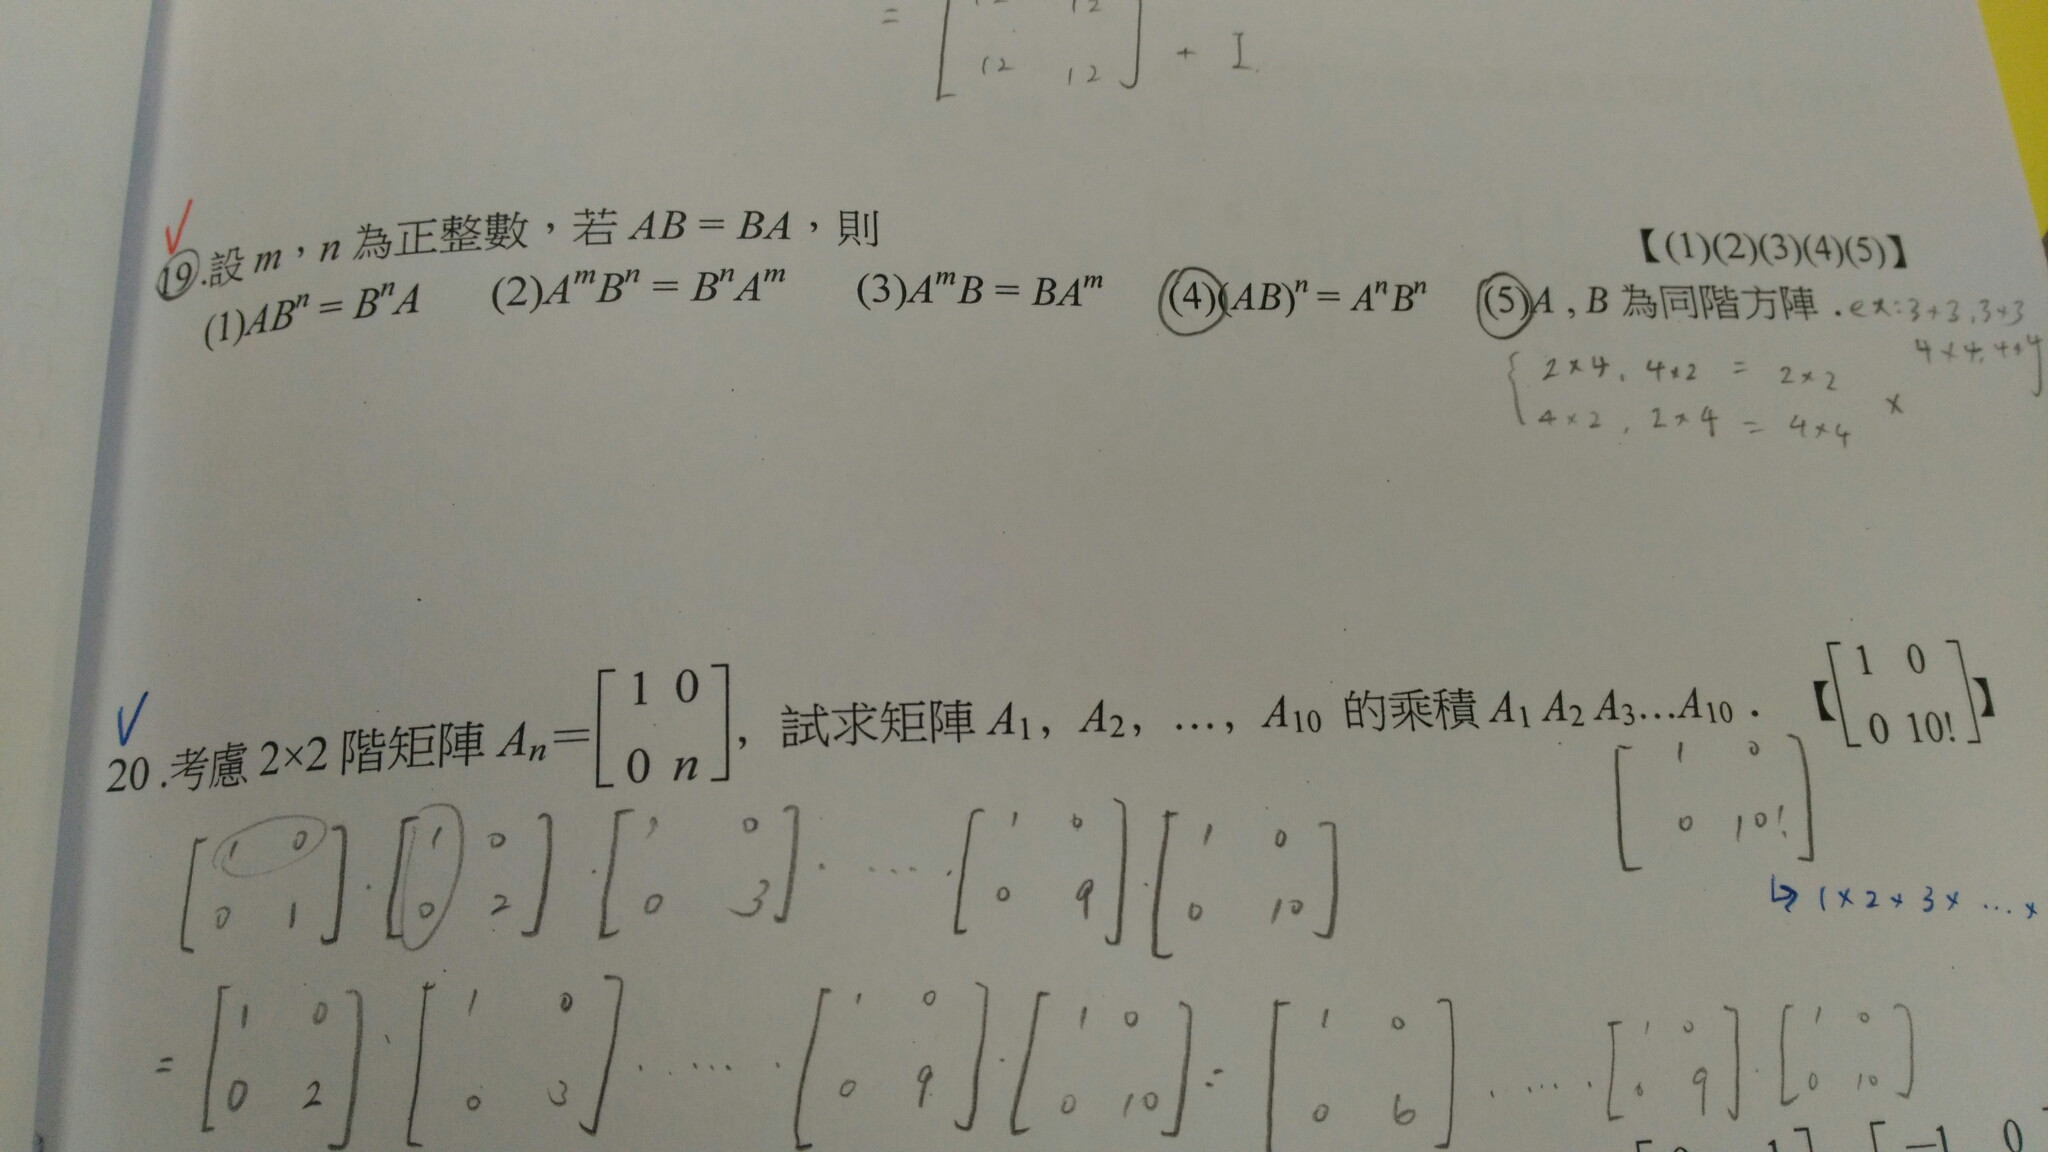 = [12 12
12 12] + I
19.設 m，n 為正整數，若 AB = BA，則 【(1)(2)(3)(4)(5)】
(1)ABⁿ = BⁿA (2)AᵐBⁿ = BⁿAᵐ (3)AᵐB = BAᵐ (4)(AB)ⁿ = AⁿBⁿ (5)A , B 為同階方陣．ex:3×3,3×3
4×4,4×4
{2×4, 4×2 = 2×2
4×2, 2×4 = 4×4 ×
20.考慮 2×2 階矩陣 Aₙ=[1 0
0 n], 試求矩陣 A₁, A₂, …, A₁₀ 的乘積 A₁ A₂ A₃…A₁₀． 【[1 0
0 10!]】
[1 0
0 10!]
↳ 1×2×3×…×
[1 0
0 1]·[1 0
0 2]·[1 0
0 3]·…·[1 0
0 9]·[1 0
0 10]
= [1 0
0 2]·[1 0
0 3]·……·[1 0
0 9]·[1 0
0 10] = [1 0
0 6]·…·[1 0
0 9]·[1 0
0 10]
[0 1] [−1 0